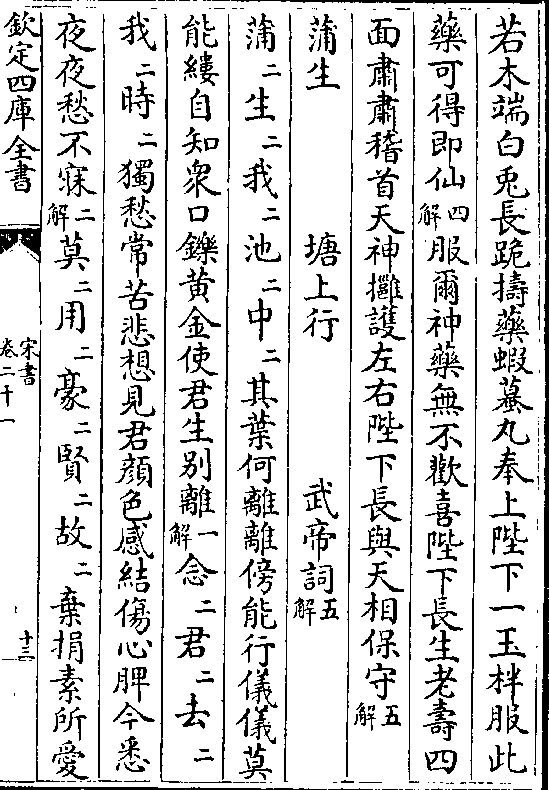 若木端白兎長跪擣藥蝦蟇丸奉上陛下一玉柈服此
藥可得即仙四解服爾神藥無不歡喜陛下長生老壽四
面肅肅稽首天神擁護左右陛下長與天相保守五解
蒲生 塘上行 武帝詞五解
蒲二生二我二池二中二其葉何離離傍能行儀儀莫
能縷自知衆口鑠黄金使君生别離一解念二君二去二
我二時二獨愁常苦悲想見君顔色感結傷心脾今悉
夜夜愁不寐二解莫二用二豪二賢二故二棄捐素所愛
欽定四庫全書
宋書
卷二十一
十三